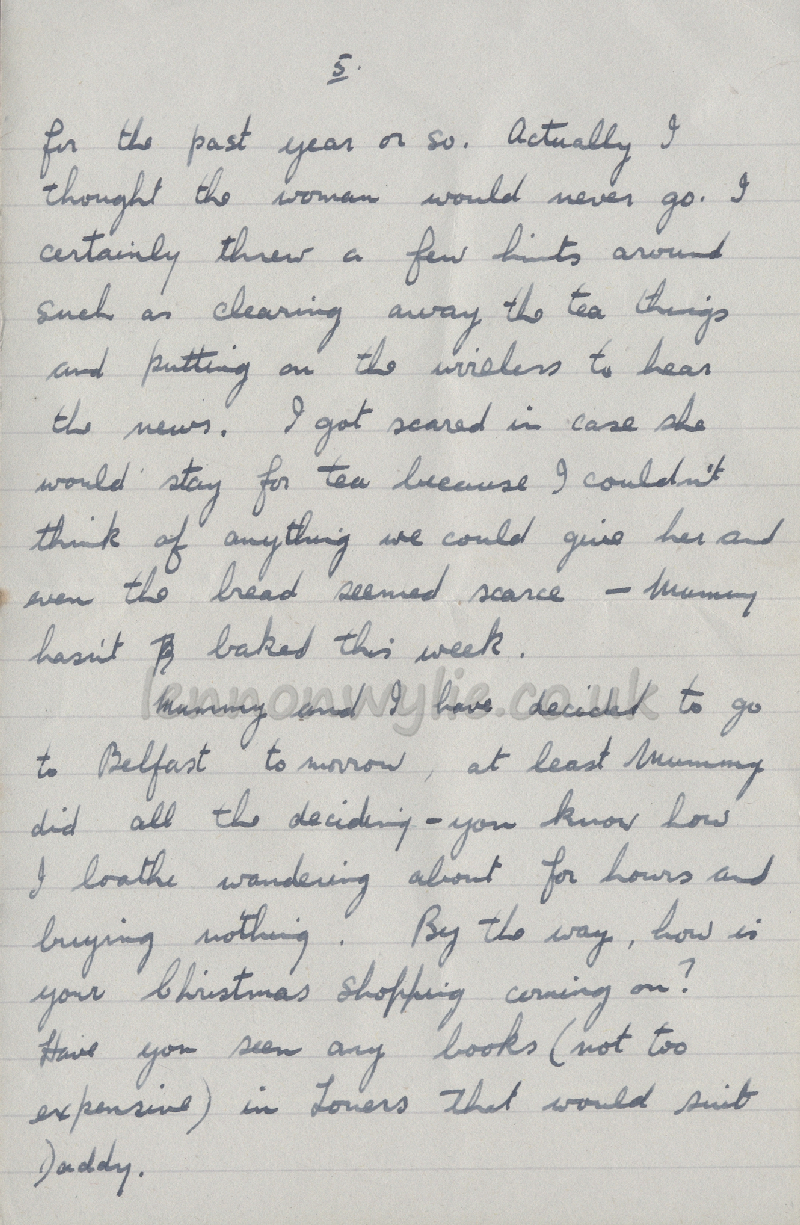 5.
for the past year or so. Actually I
thought the woman would never go. I
certainly threw a few hints around
such as clearing away the tea things
and putting on the wireless to hear
the news. I got scared in case she
would stay for tea because I couldn't
think of anything we could give her and
even the bread seemed scarce – Mummy
hasn't baked this week.
lennonwylie.co.uk
Mummy and I have decided to go
to Belfast to morrow, at least Mummy
did all the deciding – you know how
I loathe wandering about for hours and
buying nothing. By the way, how is
your Christmas shopping coming on?
Have you seen any books (not too
expensive) in that would suit
Daddy.